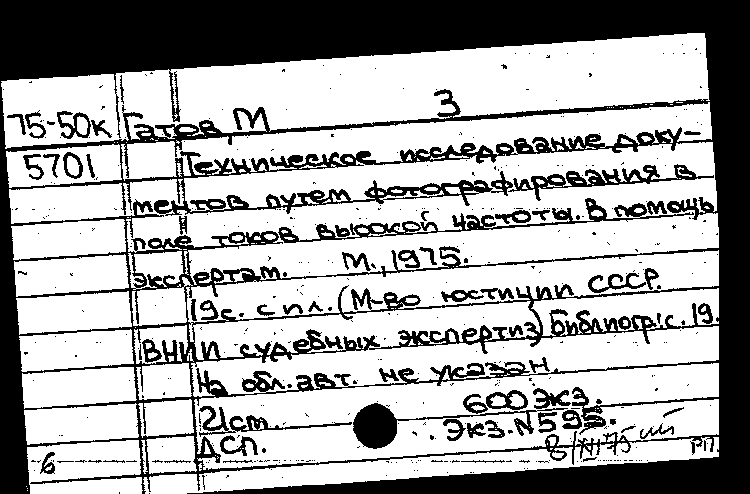 3
75-50к Гатов, М
5701 Техническое исследование доку-
ментов путем фотографирования в
поле токов высокой частоты. В помощь
экспертам. М., 1975.
19с. с ил. (М-во юстиции СССР.
ВНИИ судебных экспертиз) Библиогр.: с. 19.
На обл. авт. не указан.
600 экз.
2Iст. Экз. N 595.
ДСП.
6